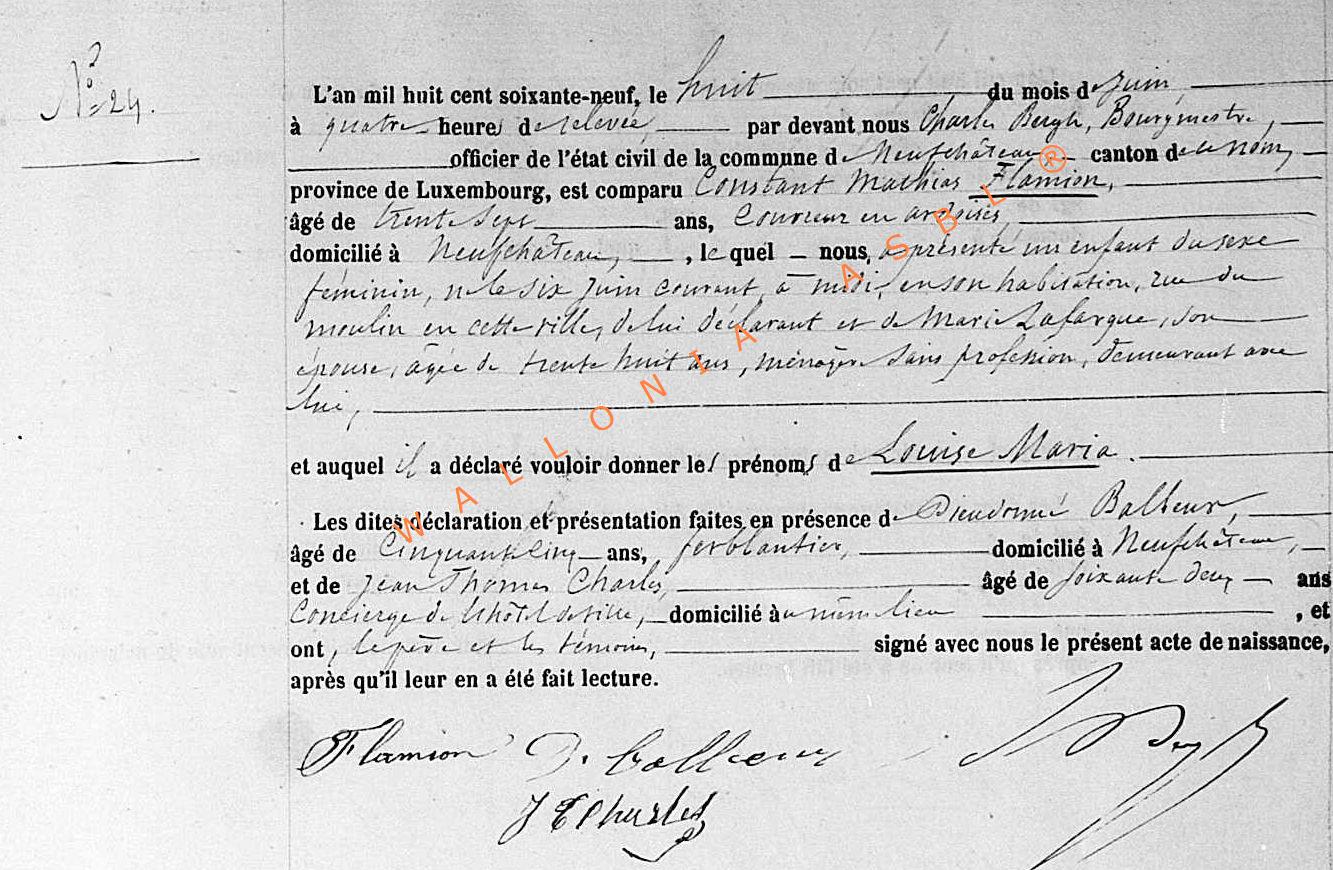 N° 24.
L'an mil huit cent soixante-neuf, le huit du mois de juin,
à quatre heures de relevée, par devant nous Charles Bergh, Bourgmestre,
officier de l'état civil de la commune de Neufchâteau canton de ce nom,
province de Luxembourg, est comparu Constant Mathias Flamion,
âgé de trente sept ans, Couvreur en ardoises
domicilié à Neufchâteau, , le quel nous, a présenté un enfant du sexe
féminin, né le six juin courant, à midi, en son habitation, rue du
moulin en cette ville, de lui déclarant et de Marie Lafargue, son
épouse, âgée de trente huit ans, ménagère sans profession, demeurant avec
lui,
et auquel il a déclaré vouloir donner les prénoms de Louise Maria.
Les dites déclaration et présentation faites en présence de Dieudonné Balleux,
âgé de Cinquante cinq ans, ferblantier, domicilié à Neufchâteau,
et de Jean Thomas Charles, âgé de soixante deux ans
Concierge de l'hôtel de ville, domicilié au même lieu , et
ont, le père et les témoins, signé avec nous le présent acte de naissance,
après qu'il leur en a été fait lecture.
Flamion D. Balleux
J T Charles
WALLONIA ASBL ®